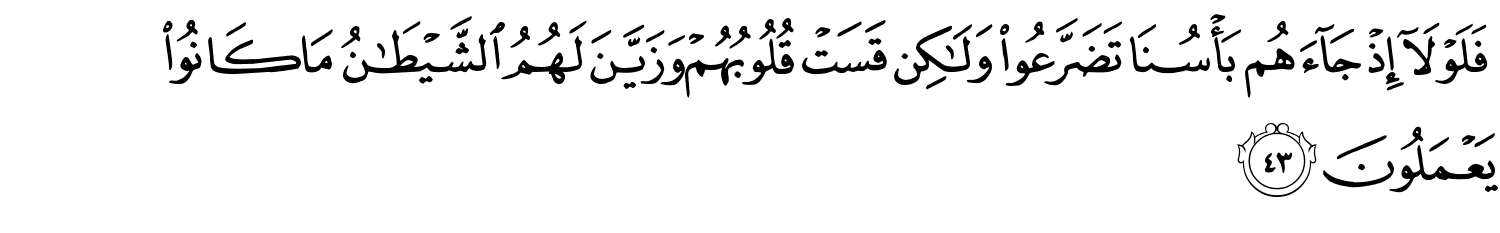 فَلَوْلَآ إِذْ جَآءَهُم بَأْسُنَا تَضَرَّعُوا۟ وَلَـٰكِن قَسَتْ قُلُوبُهُمْ وَزَيَّنَ لَهُمُ ٱلشَّيْطَـٰنُ مَا كَانُوا۟
يَعْمَلُونَ ٤٣